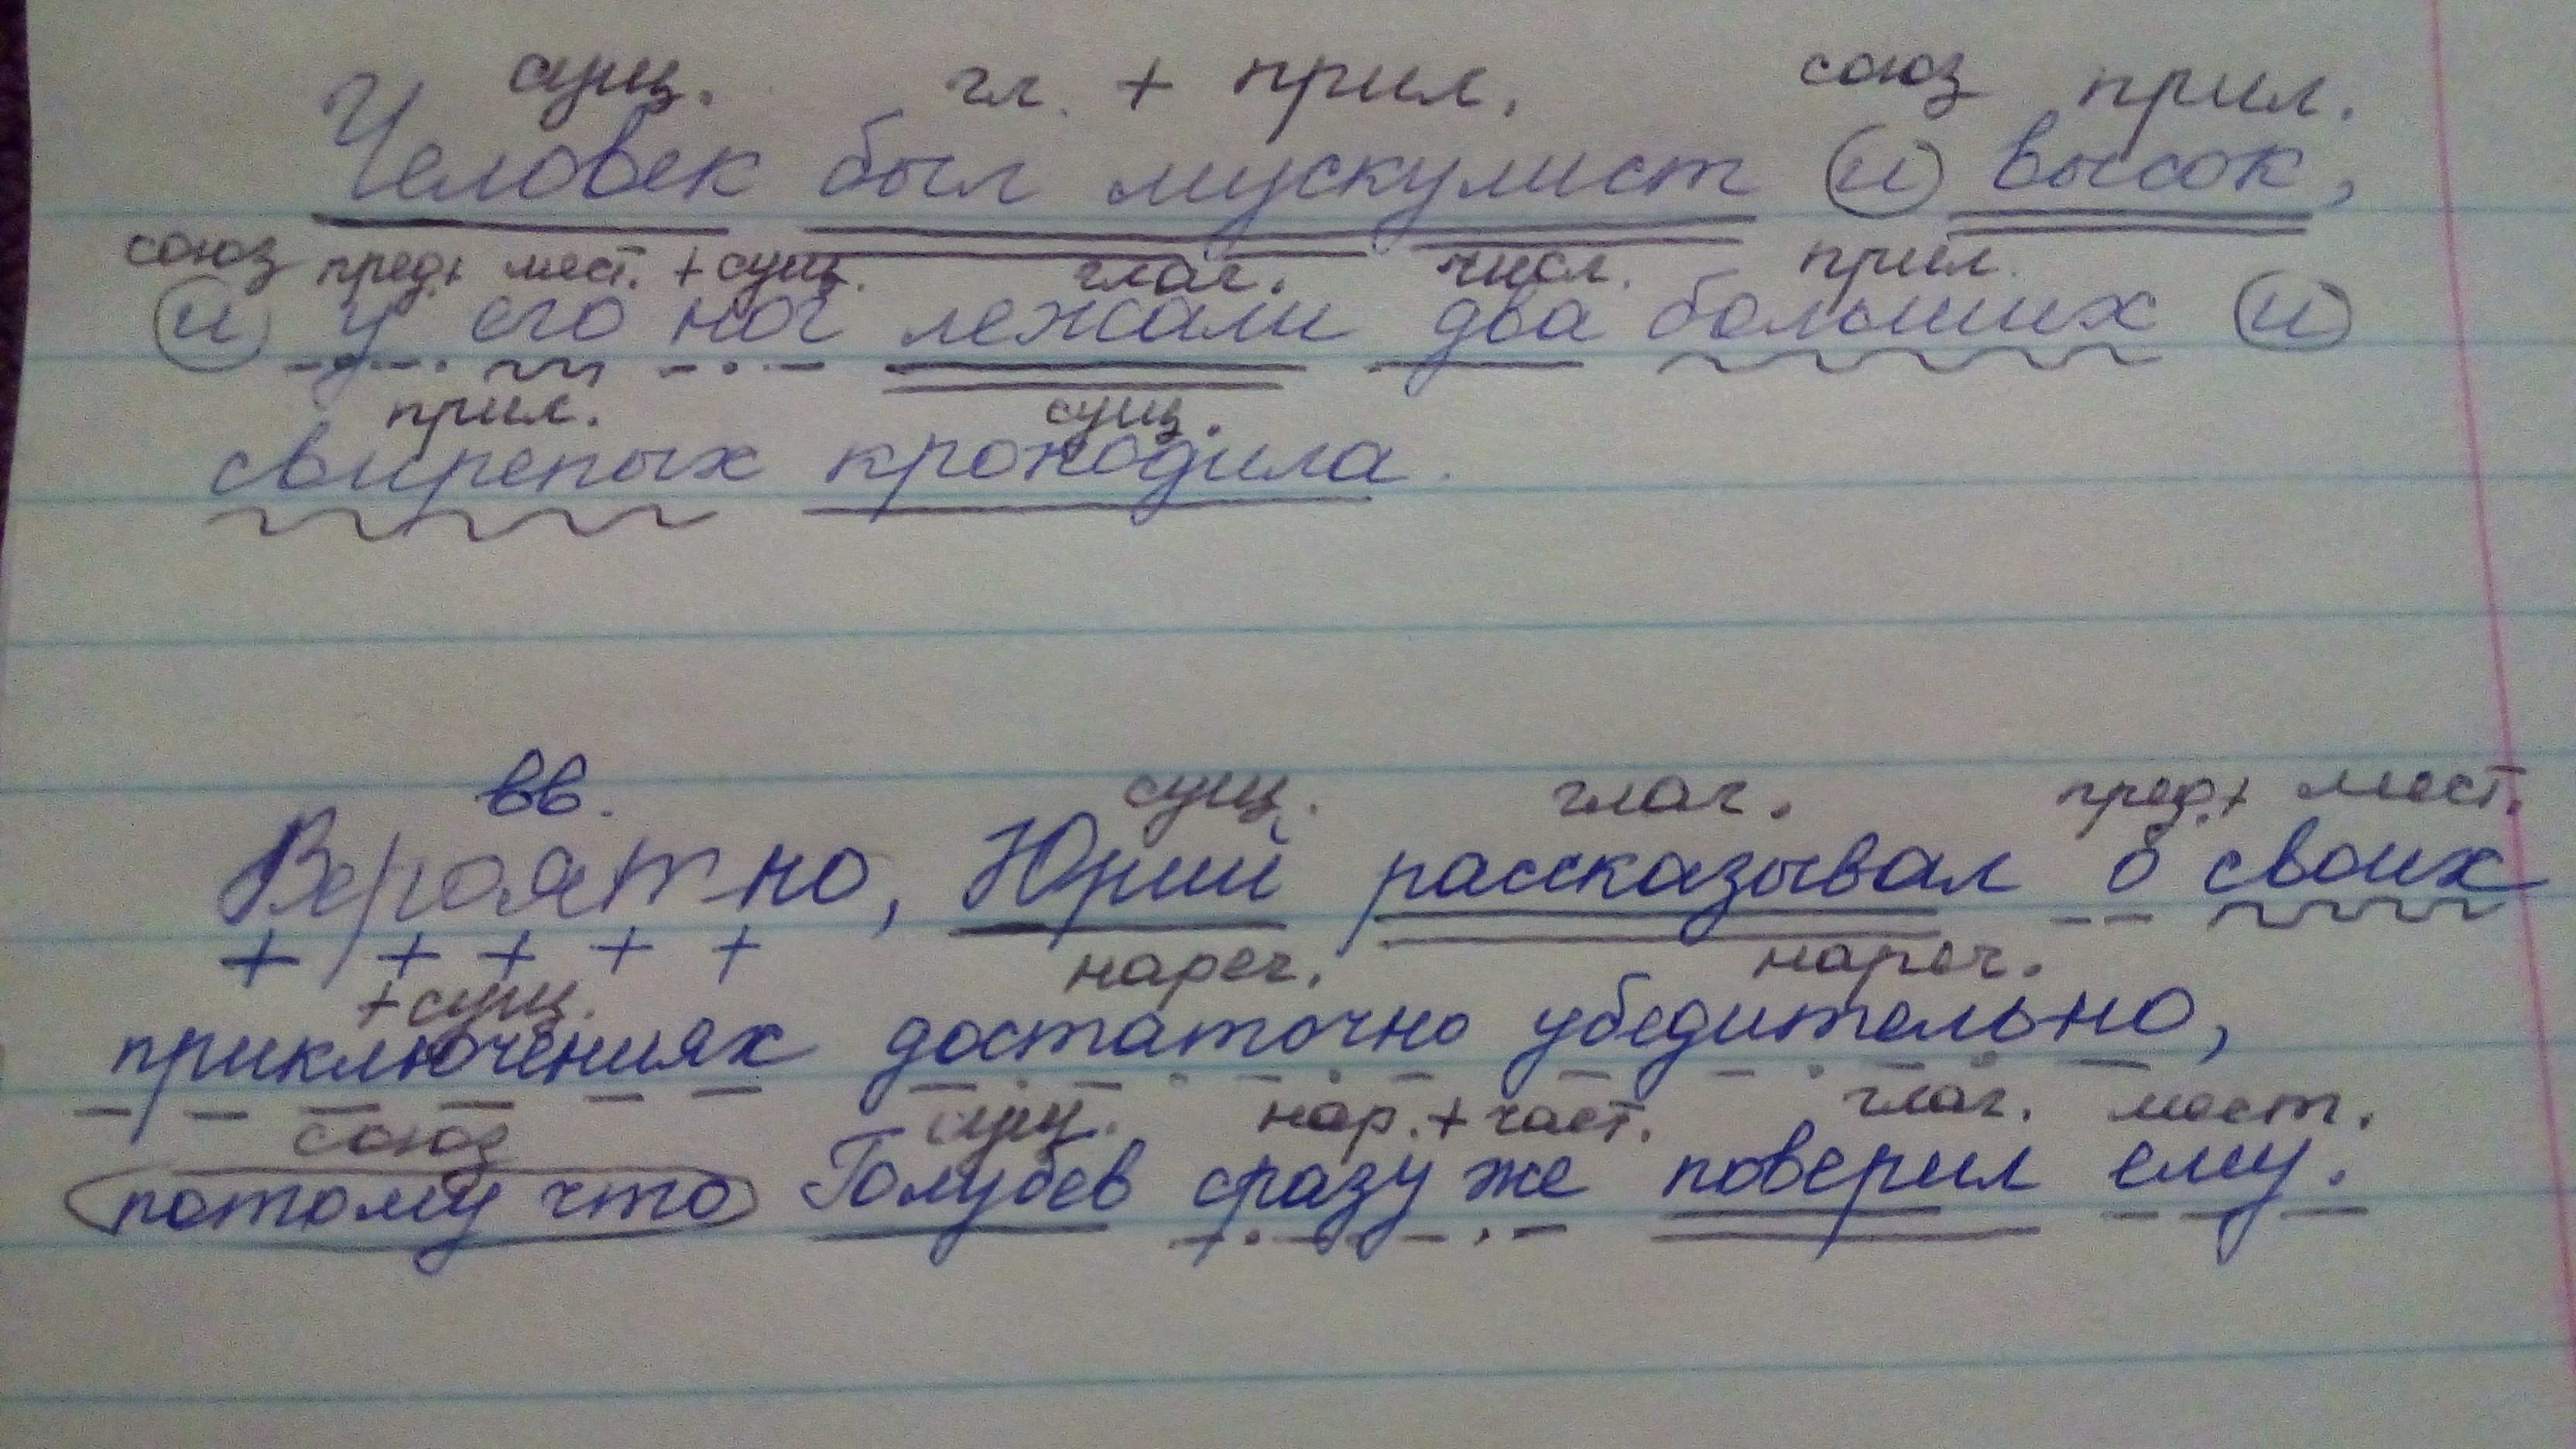 сущ. гл. + прил. союз прил.
Человек был мускулист и высок,
союз пред+ мест. +сущ. глаг. числ. прил.
и у его ног лежали два больших и
прил. сущ.
свирепых крокодила.
вв. сущ. глаг. пред.+ мест.
Вероятно, Юрий рассказывал о своих
+сущ. нареч. нареч.
приключениях достаточно убедительно,
союз сущ. нар.+част. глаг. мест.
потому что Голубев сразу же поверил ему.